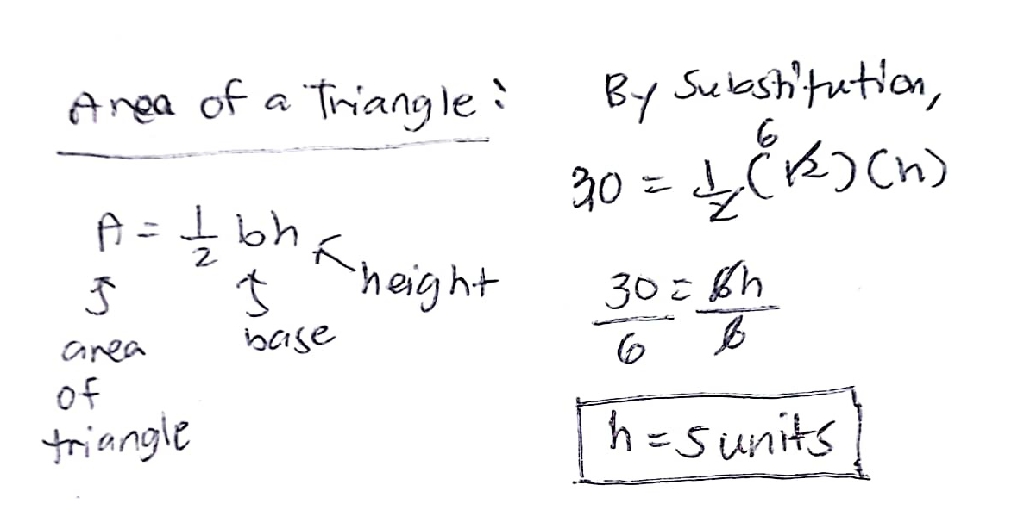 Area of a Triangle:
A = 1/2 bh
height
area of triangle
base
By Substitution,
30 = 1/2 (12) (h)
6
30/6 = 6h/6
h = 5 units